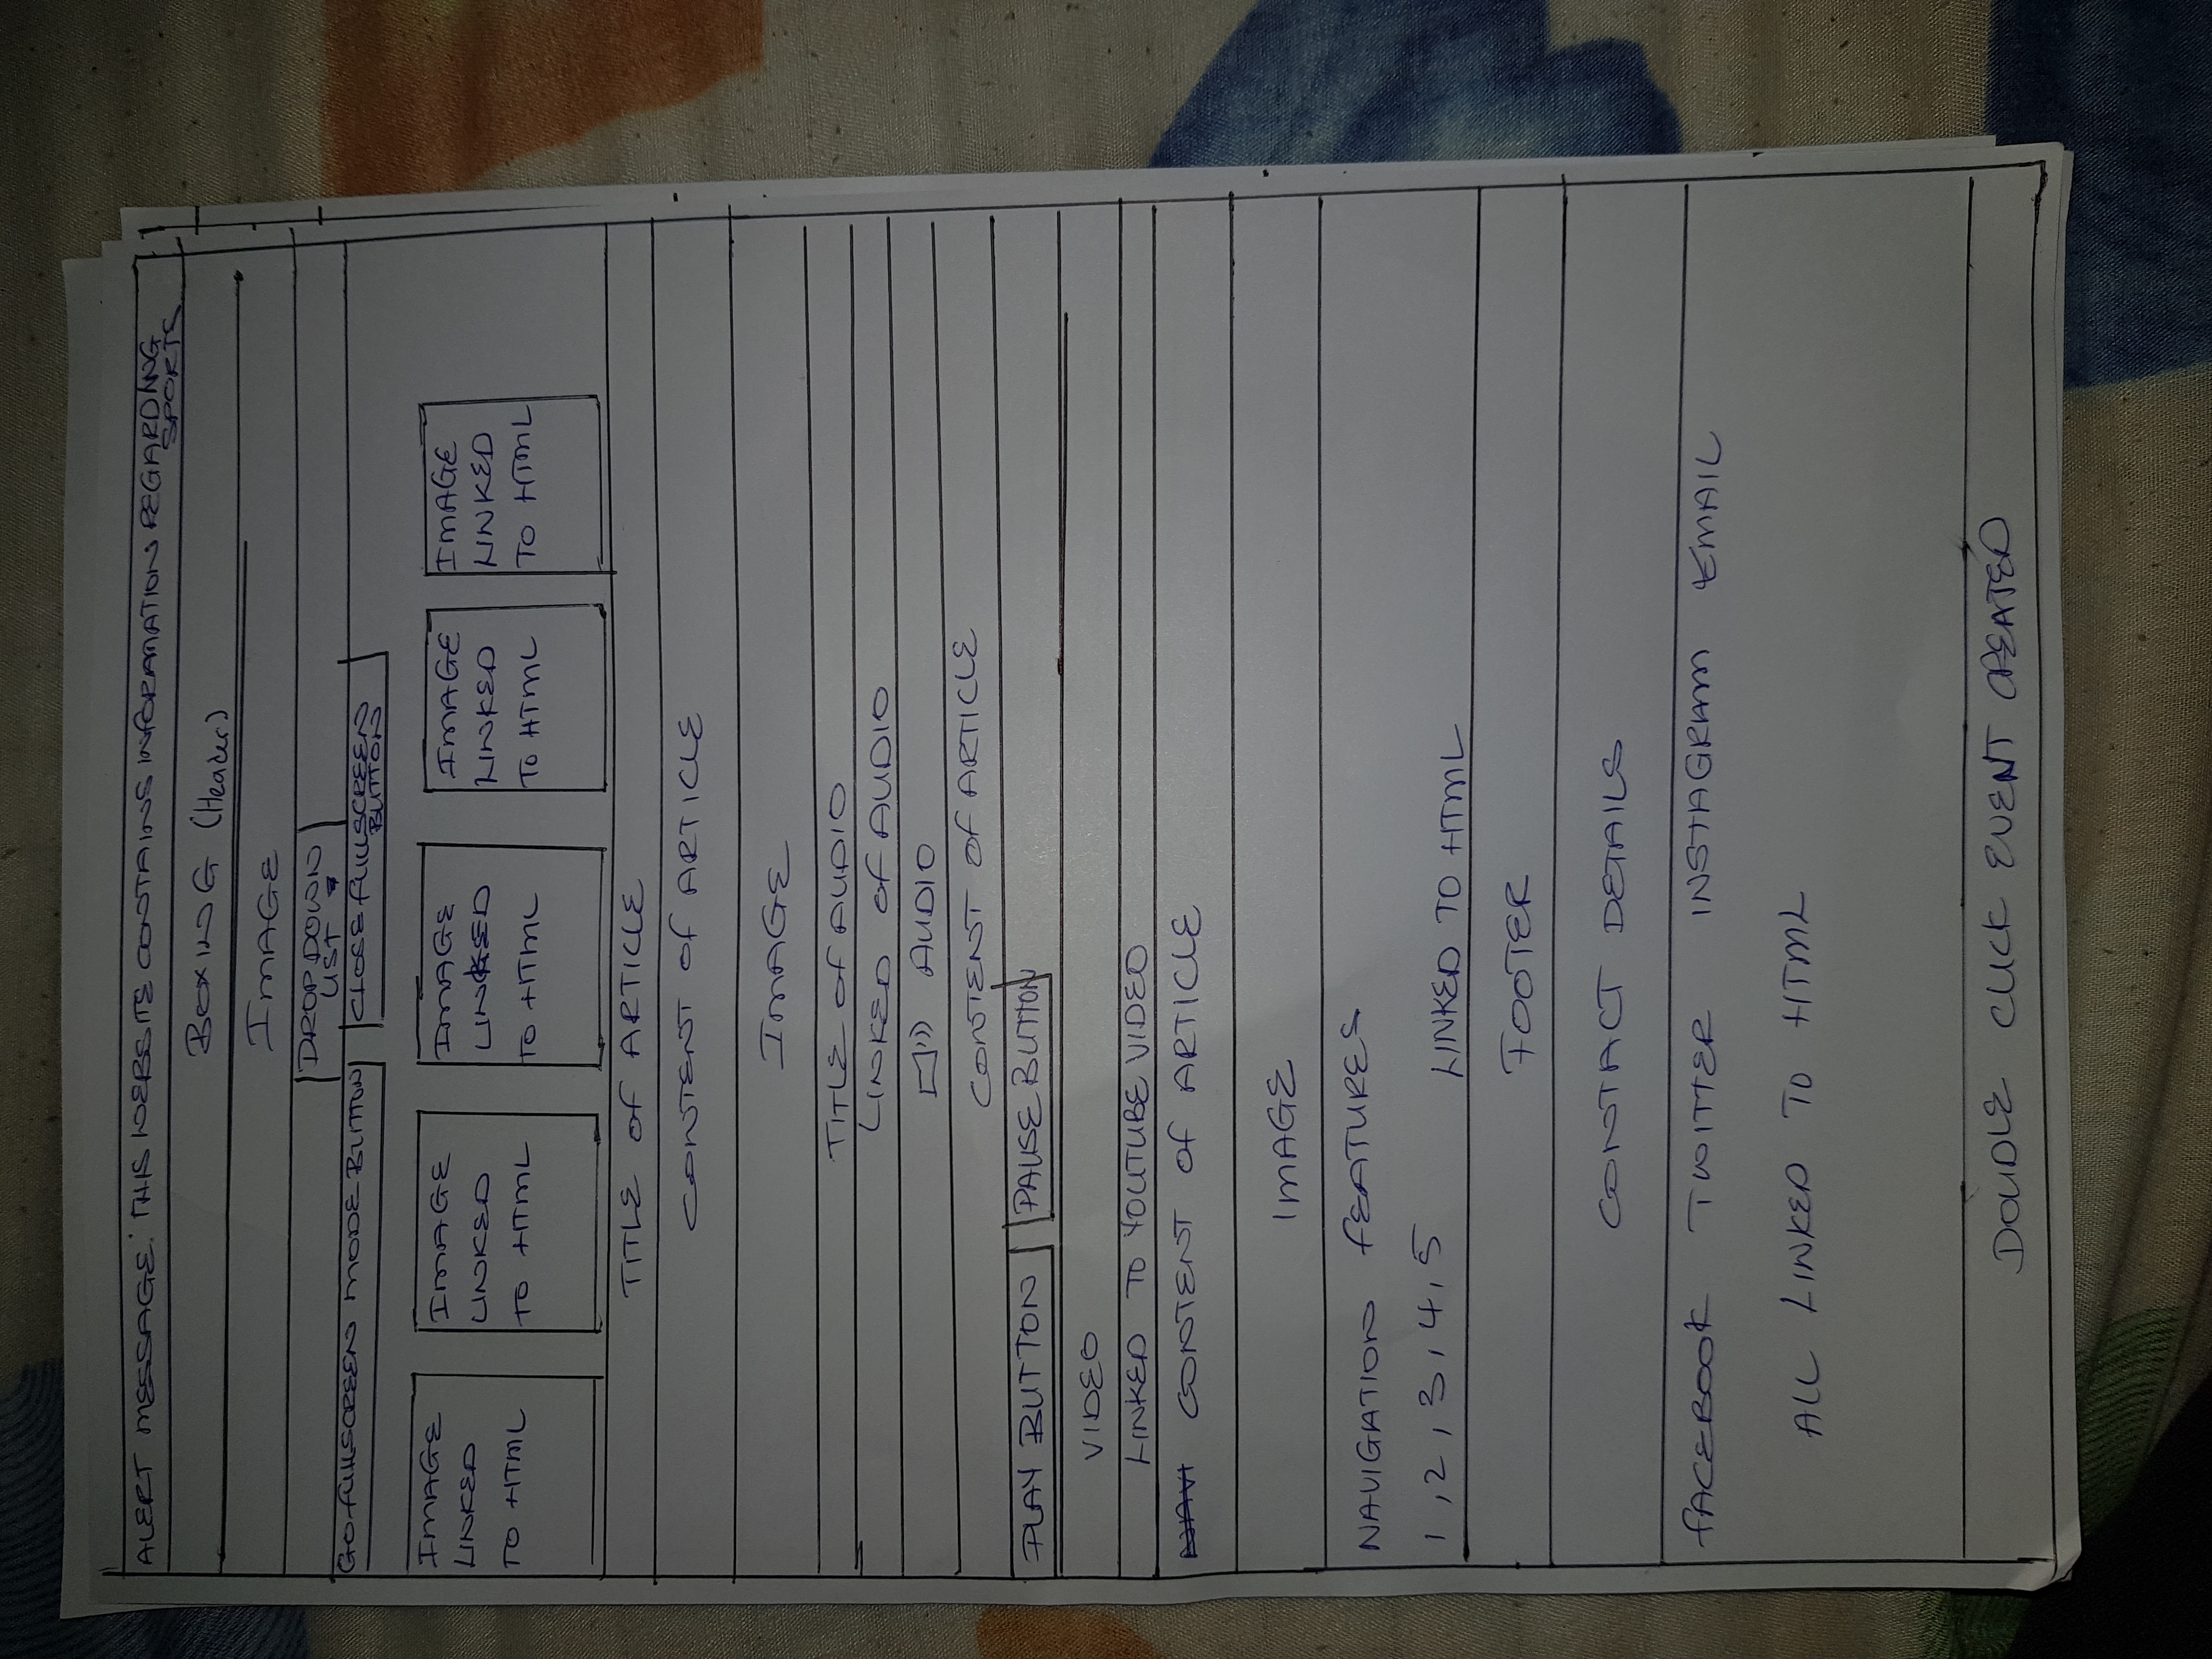 ALERT MESSAGE: THIS WEBSITE CONTAINS INFORMATION REGARDING
SPORTS
BOXING (Header)
IMAGE
DROP DOWN
LIST
GO FULLSCREEN MODE BUTTON
CLOSE FULLSCREEN
BUTTON
IMAGE
LINKED
TO HTML
IMAGE
LINKED
TO HTML
IMAGE
LINKED
TO HTML
IMAGE
LINKED
TO HTML
IMAGE
LINKED
TO HTML
TITLE OF ARTICLE
CONTENT OF ARTICLE
IMAGE
TITLE OF AUDIO
LINKED OF AUDIO
AUDIO
CONTENT OF ARTICLE
PLAY BUTTON PAUSE BUTTON
VIDEO
LINKED TO YOUTUBE VIDEO
NAVI CONTENT OF ARTICLE
IMAGE
NAVIGATION FEATURES
1, 2, 3, 4, 5 LINKED TO HTML
FOOTER
CONTACT DETAILS
FACEBOOK TWITTER INSTAGRAM EMAIL
ALL LINKED TO HTML
DOUDLE CLICK EVENT CREATED